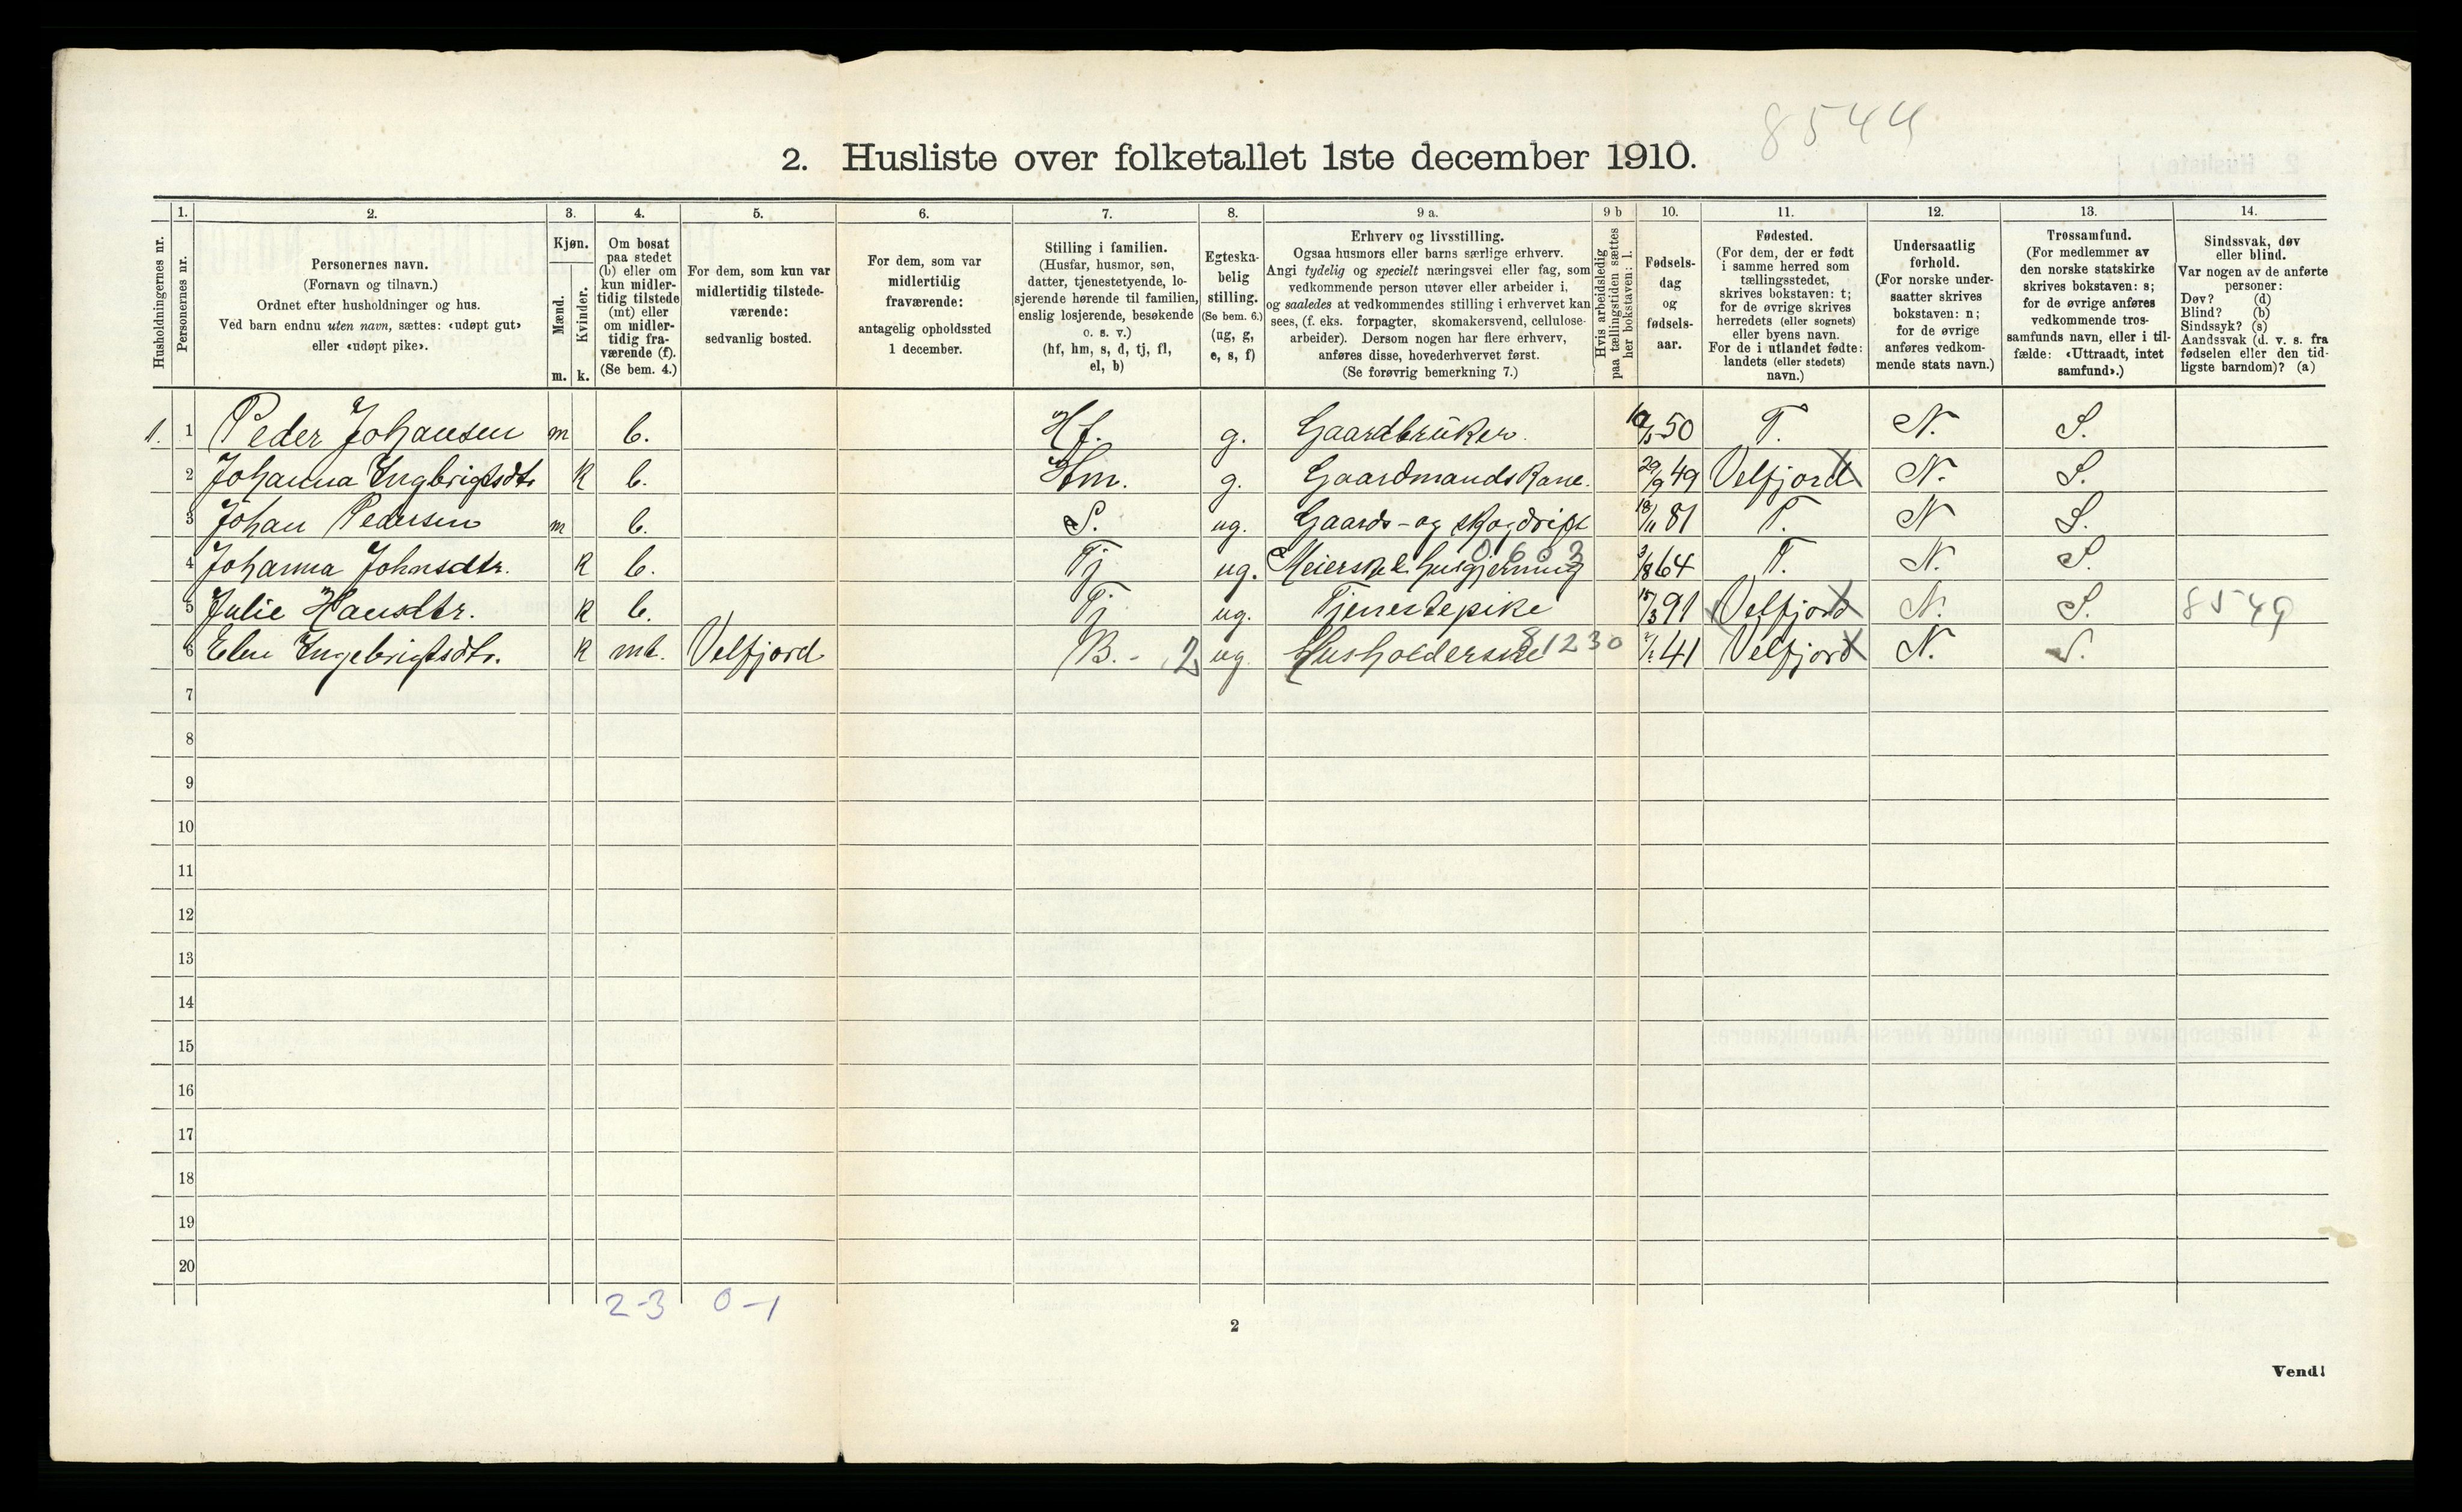 8544
2. Husliste over folketallet 1ste december 1910.
Husholdningernes nr.
1.
Personernes nr.
2.
Personernes navn.
(Fornavn og tilnavn.)
Ordnet efter husholdninger og hus.
Ved barn endnu uten navn, sættes: «udøpt gut»
eller «udøpt pike».
3.
Kjøn.
Mænd.
Kvinder.
m. k.
4.
Om bosat
paa stedet
(b) eller om
kun midler-
tidig tilstede
(mt) eller
om midler-
tidig fra-
værende (f).
(Se bem. 4.)
5.
For dem, som kun var
midlertidig tilstede-
værende:
sedvanlig bosted.
6.
For dem, som var
midlertidig
fraværende:
antagelig opholdssted
1 december.
7.
Stilling i familien.
(Husfar, husmor, søn,
datter, tjenestetyende, lo-
sjerende hørende til familien,
enslig losjerende, besøkende
o. s. v.)
(hf, hm, s, d, tj, fl,
el, b)
8.
Egteska-
belig
stilling.
(Se bem. 6.)
(ug, g,
e, s, f)
9 a.
Erhverv og livsstilling.
Ogsaa husmors eller barns særlige erhverv.
Angi tydelig og specielt næringsvei eller fag, som
vedkommende person utøver eller arbeider i,
og saaledes at vedkommendes stilling i erhvervet kan
sees, (f. eks. forpagter, skomakersvend, cellulose-
arbeider). Dersom nogen har flere erhverv,
anføres disse, hovederhvervet først.
(Se forøvrig bemerkning 7.)
9 b
Hvis arbeidsledig
paa tællingstiden sættes
her bokstaven: l.
10.
Fødsels-
dag
og
fødsels-
aar.
11.
Fødested.
(For dem, der er født
i samme herred som
tællingsstedet,
skrives bokstaven: t;
for de øvrige skrives
herredets (eller sognets)
eller byens navn.
For de i utlandet fødte:
landets (eller stedets)
navn.)
12.
Undersaatlig
forhold.
(For norske under-
saatter skrives
bokstaven: n;
for de øvrige
anføres vedkom-
mende stats navn.)
13.
Trossamfund.
(For medlemmer av
den norske statskirke
skrives bokstaven: s;
for de øvrige anføres
vedkommende tros-
samfunds navn, eller i til-
fælde: «Uttraadt, intet
samfund».)
14.
Sindssvak, døv
eller blind.
Var nogen av de anførte
personer:
Døv? (d)
Blind? (b)
Sindssyk? (s)
Aandssvak (d. v. s. fra
fødselen eller den tid-
ligste barndom)? (a)
1. 1 Peder Johansen m b. Hf. g. Gaardbruker. 50 T. N. S.
2 Johanna Engbrigtsdtr k b. Hm. g. Gaardmandskone. 29/9 49 Velfjord N. S.
3 Johan Pedersen m b. S. ug. Gaards- og skogdrift 18/11 81 T. N S.
4 Johanna Johnsdtr. k b. Tj ug. Meierske & husgjerning 3/8 64 T. N. S.
5 Julie Hansdtr. k b. Tj ug. Tjenestepike 15/3 91 Velfjord N. S. 8549
6 Elen Engebrigtsdtr. k mt. Velfjord B. - 2 ug Husholderske 81230 41 Velfjord N. S.
7
8
9
10
11
12
13
14
15
16
17
18
19
20
2-3 0-1
2
Vend!